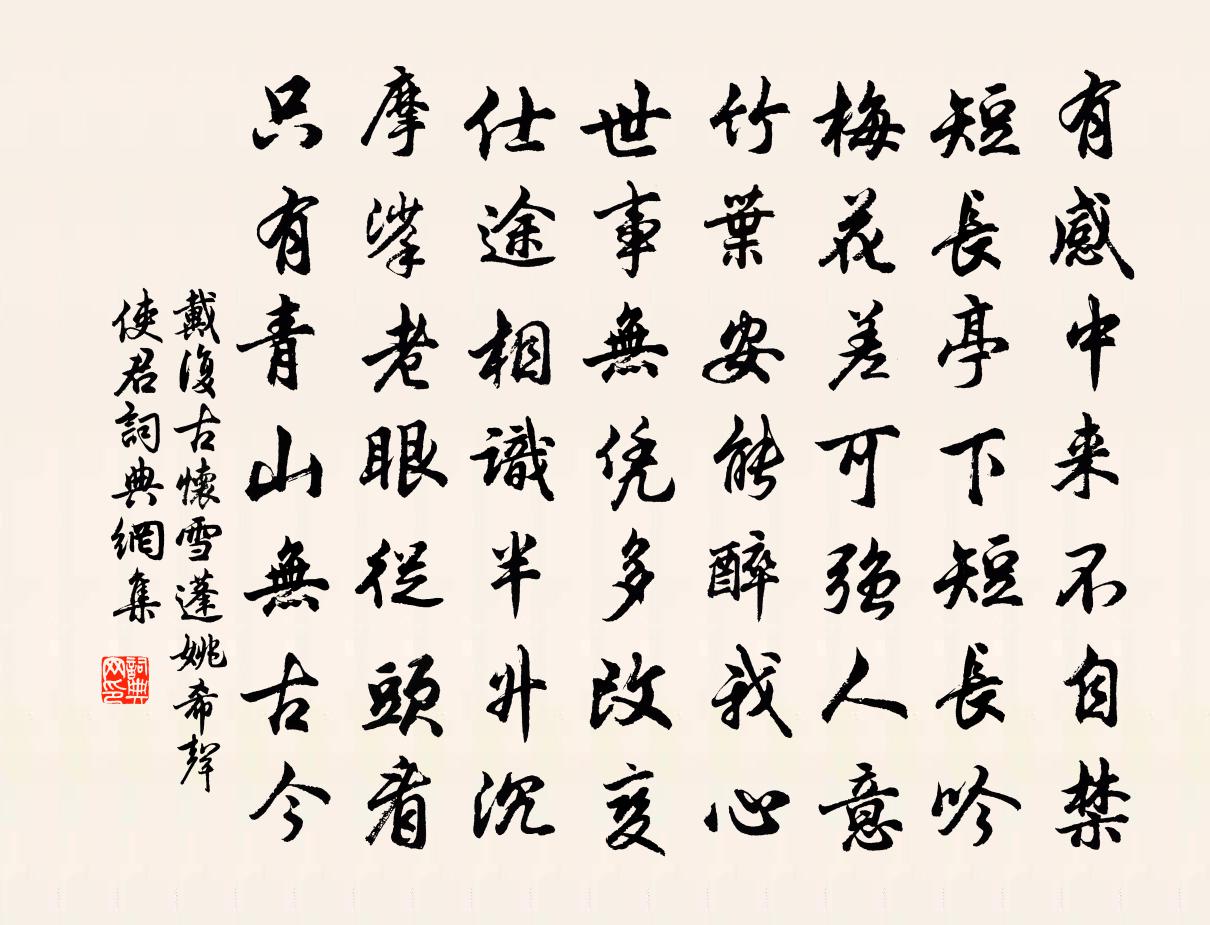 有感中来不自禁
短長亭下短長吟
梅花差可強人意
竹葉安能醉我心
世事無凭多改变
仕途相識半升沉
摩挲老眼從頭看
只有青山無古今
戴復古懷雪蓬姚希聲
使君詞典網集
詞典网印